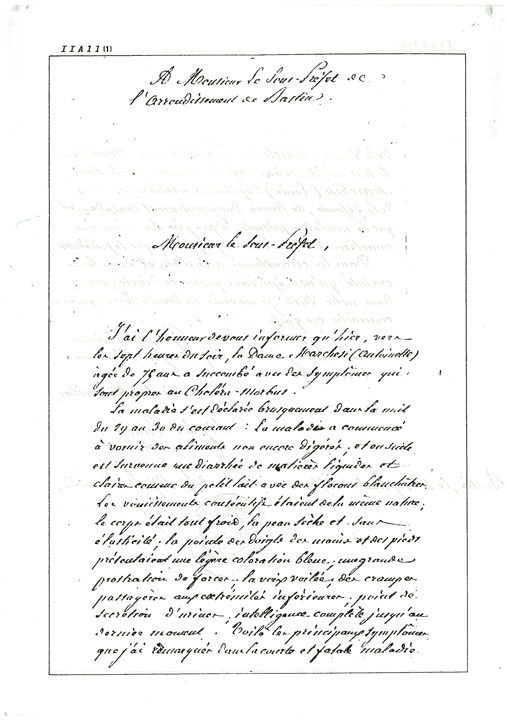 IIA11(1)
A Monsieur le Sous-Préfet de
l'Arrondissement de Bastia.
Monsieur le Sous-Préfet,
J'ai l'honneur de vous informer qu'hier, vers
les sept heures du soir, la Dame Marchesi (Antoinette)
agée de 75 ans a succombé avec des symptômes qui
sont propres au Choléra-Morbus.
La maladie s'est déclarée brusquement dans la nuit
du 29 au 30 du courant : la malade a commencé
à vomir des aliments non encore digérés, et ensuite
est survenue une diarrhée de matières liquides et
claires comme du petit lait avec des flocons blanchâtres.
Les vomissements consécutifs étaient de la même nature ;
le corps était tout froid, la peau sèche et sans
élasticité ; la pointe des doigts des mains et des pieds
présentaient une légère coloration bleue ; une grande
prostration de forces, la voix voilée, des crampes
passagères aux extrémités inférieures, point de
secrétion d'urines ; intelligence complète jusqu'au
dernier moment. Voilà les principaux symptômes
que j'ai remarqués dans la courte et fatale maladie